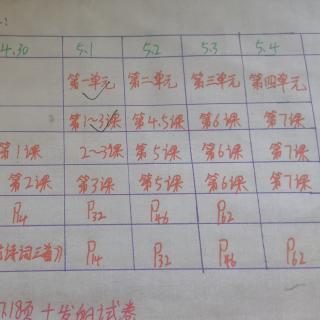 4.30 5.1 5.2 5.3 5.4
第一单元 第二单元 第三单元 第四单元
第1~3课 第4.5课 第6课 第7课
第1课 2~3课 第5课 第6课 第7课
第2课 第3课 第5课 第6课 第7课
P14 P32 P46 P62
诗词三首》 P14 P32 P46 P62
18页+发的试卷